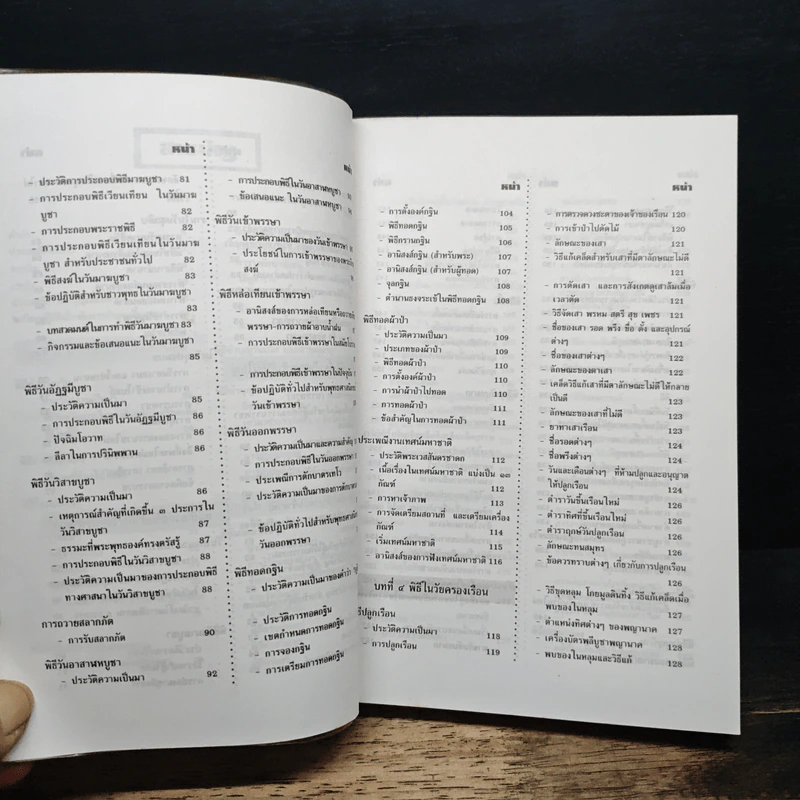 หน้า
- ประวัติการประกอบพิธีมาฆบูชา 81
- การประกอบพิธีเวียนเทียน ในวันมาฆ
บูชา 82
- การประกอบพระราชพิธี 82
- การประกอบพิธีเวียนเทียนในวันมาฆ
บูชา สำหรับประชาชนทั่วไป 82
- พิธีสงฆ์ในวันมาฆบูชา 83
- ข้อปฏิบัติสำหรับชาวพุทธในวันมาฆบูชา
83
- บทสวดมนต์ในการทำพิธีวันมาฆบูชา 83
- กิจกรรมและข้อเสนอแนะในวันมาฆบูชา
85
พิธีวันอัฏฐมีบูชา
- ประวัติความเป็นมา 85
- การประกอบพิธีในวันอัฏฐมีบูชา 86
- ปัจฉิมโอวาท 86
- ลีลาในการปรินิพพาน 86
พิธีวันวิสาขบูชา
- ประวัติความเป็นมา 86
- เหตุการณ์สำคัญที่เกิดขึ้น ๓ ประการใน
วันวิสาขบูชา 87
- ธรรมะที่พระพุทธองค์ทรงตรัสรู้ 87
- การประกอบพิธีในวันวิสาขบูชา 88
- ประวัติความเป็นมาของการประกอบพิธี
ทางศาสนาในวันวิสาขบูชา 88
การถวายสลากภัต
- การรับสลากภัต 90
พิธีวันอาสาฬหบูชา
- ประวัติความเป็นมา 92
หน้า
- การประกอบพิธีในวันอาสาฬหบูชา
- ข้อเสนอแนะ ในวันอาสาฬหบูชา
พิธีวันเข้าพรรษา
- ประวัติความเป็นมาของวันเข้าพรรษา
- ประโยชน์ในการเข้าพรรษาของพระ
สงฆ์
พิธีหล่อเทียนเข้าพรรษา
- อานิสงส์ของการหล่อเทียน
พรรษา-การถวายผ้าอาบน้ำฝน
- การประกอบพิธีเข้าพรรษา
- การประกอบพิธีเข้าพรรษาในปัจจุบัน
- ข้อปฏิบัติทั่วไปสำหรับพุทธศาสนิกชน
วันเข้าพรรษา
พิธีวันออกพรรษา
- ประวัติความเป็นมาและความสำคัญ
- การประกอบพิธีในวันออกพรรษา
- ประเพณีการตักบาตรเทโว
- ประวัติความเป็นมาของการตักบาตร
- ข้อปฏิบัติทั่วไปสำหรับพุทธ
วันออกพรรษา
พิธีทอดกฐิน
- ประวัติความเป็นมาของคำว่า
- ประวัติการทอดกฐิน
- เขตกำหนดการทอดกฐิน
- การจองกฐิน
- การเตรียมการทอดกฐิน
หน้า
- การตั้งองค์กฐิน 104
- พิธีทอดกฐิน 105
- พิธีกรานกฐิน 106
- อานิสงส์กฐิน (สำหรับพระ) 107
- อานิสงส์กฐิน (สำหรับผู้ทอด) 107
- จุลกฐิน 108
- ตำนานธงจระเข้ในพิธีทอดกฐิน 108
พิธีทอดผ้าป่า
- ประวัติความเป็นมา 109
- ประเภทของผ้าป่า 109
- พิธีทอดผ้าป่า 110
- การตั้งองค์ผ้าป่า 110
- การนำผ้าป่าไปทอด 110
- การทอดผ้าป่า 111
- ข้อสำคัญในการทอดผ้าป่า 111
ประเพณีงานเทศน์มหาชาติ
- ประวัติพระเวสสันดรชาดก 112
- เนื้อเรื่องในเทศน์มหาชาติ แบ่งเป็น ๑๓
กัณฑ์ 112
- การหาเจ้าภาพ 114
- การจัดเตรียมสถานที่ และเตรียมเครื่อง
กัณฑ์ 114
- เริ่มเทศน์มหาชาติ 115
- อานิสงส์ของการฟังเทศน์มหาชาติ 116
บทที่ ๔ พิธีในวัยครองเรือน
ธีปลูกเรือน
- ประวัติความเป็นมา 118
- การปลูกเรือน 119
หน้า
- การตรวจดวงชะตาของเจ้าของเรือน 120
- การเข้าป่าไปตัดไม้ 121
- ลักษณะของเสา 121
- วิธีแก้เคล็ดสำหรับเสาที่มีตาลักษณะไม่ดี
121
- การตัดเสา และการสังเกตดูเสาล้มเมื่อ
เวลาตัด 121
- วิธีจัดเสา พรหม สตรี สุข เพชร 121
- ชื่อของเสา รอด พรึง ขื่อ ดั้ง และอุปกรณ์
ต่างๆ 121
- ชื่อของเสาต่างๆ 122
- ลักษณะของตาเสา 122
- เคล็ดวิธีแก้เสาที่มีลักษณะไม่ดีให้กลาย
เป็นดี 123
- ลักษณะของเสาที่ไม่ดี 123
- ยาทาเสาเรือน 123
- ชื่อรอดต่างๆ 123
- ชื่อพรึงต่างๆ 124
- วันและเดือนต่างๆ ที่ห้ามปลูกและอนุญาต
ให้ปลูกเรือน 124
- ตำราวันขึ้นเรือนใหม่ 126
- ตำราทิศที่ขึ้นเรือนใหม่ 126
- ตำราฤกษ์วันปลูกเรือน 126
- ลักษณะทนสมุทร 126
- ข้อควรทราบต่างๆ เกี่ยวกับการปลูกเรือน
126
- วิธีขุดหลุม โกยมูลดินทิ้ง วิธีแก้เคล็ดเมื่อ
พบของในหลุม 127
- ตำแหน่งทิศต่างๆ ของพญานาค 127
- เครื่องบัตรพลีบูชาพญานาค 128
- พบของในหลุมและวิธีแก้ 128